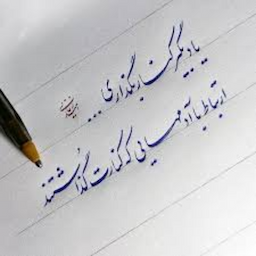 یاد بگیر کنار بگذاری...
ارتباط با آدمهایی که کنارت گذاشتند